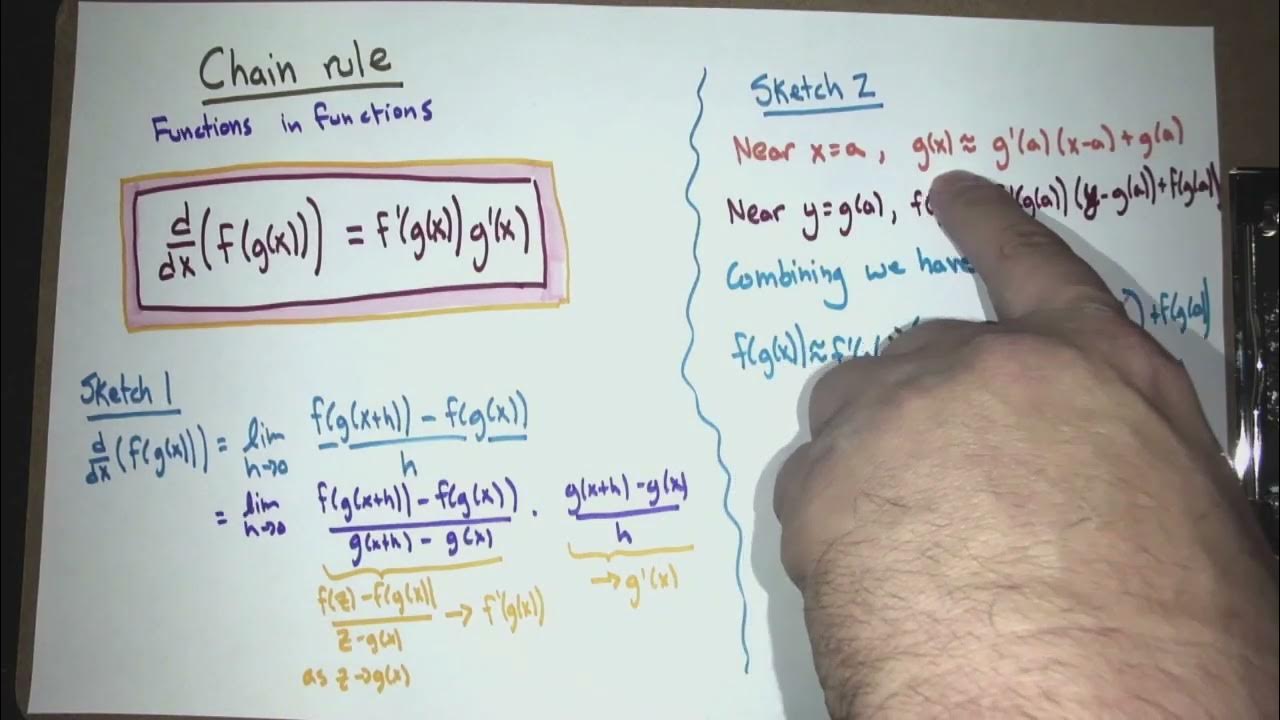 Chain rule
Functions in functions
d/dx (f(g(x))) = f'(g(x)) g'(x)
Sketch 1
d/dx (f(g(x))) = lim h→0 f(g(x+h)) - f(g(x)) / h
= lim h→0 f(g(x+h)) - f(g(x)) / g(x+h) - g(x) · g(x+h) - g(x) / h
f(z) - f(g(x)) / z - g(x) → f'(g(x))
→ g'(x)
as z→g(x)
Sketch 2
Near x=a, g(x) ≈ g'(a)(x-a) + g(a)
Near y=g(a), f( '(g(a))(y-g(a)) + f(g(a))
Combining we have
f(g(x)) ≈ f'(g( ) + f(g(a))